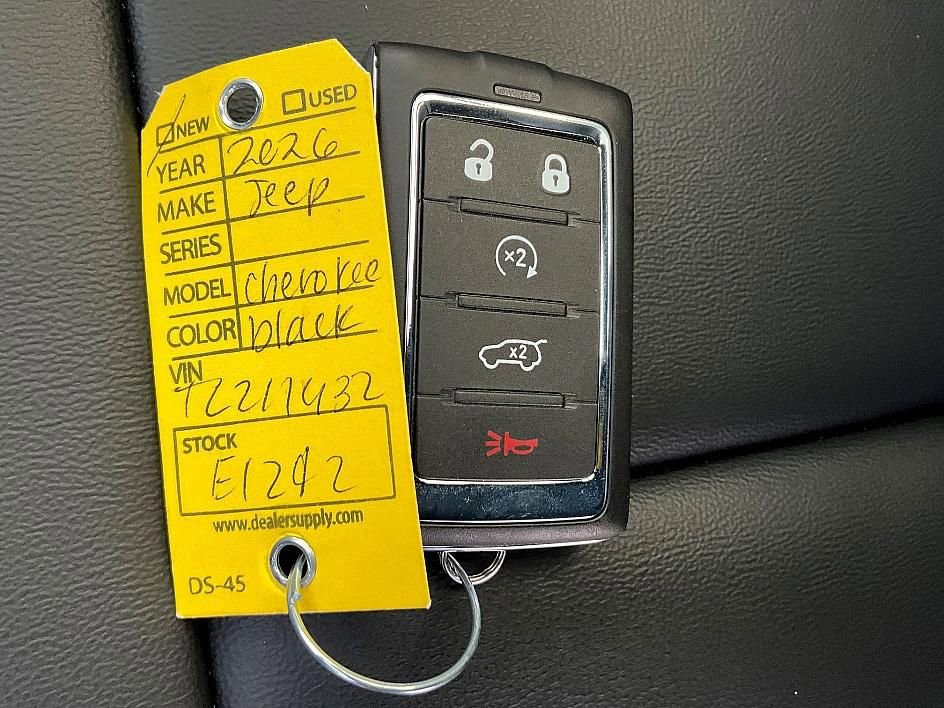 NEW USED
YEAR 2026
MAKE Jeep
SERIES
MODEL Cherokee
COLOR black
VIN
TZ217432
STOCK
E1242
www.dealersupply.com
DS-45
x2
x2